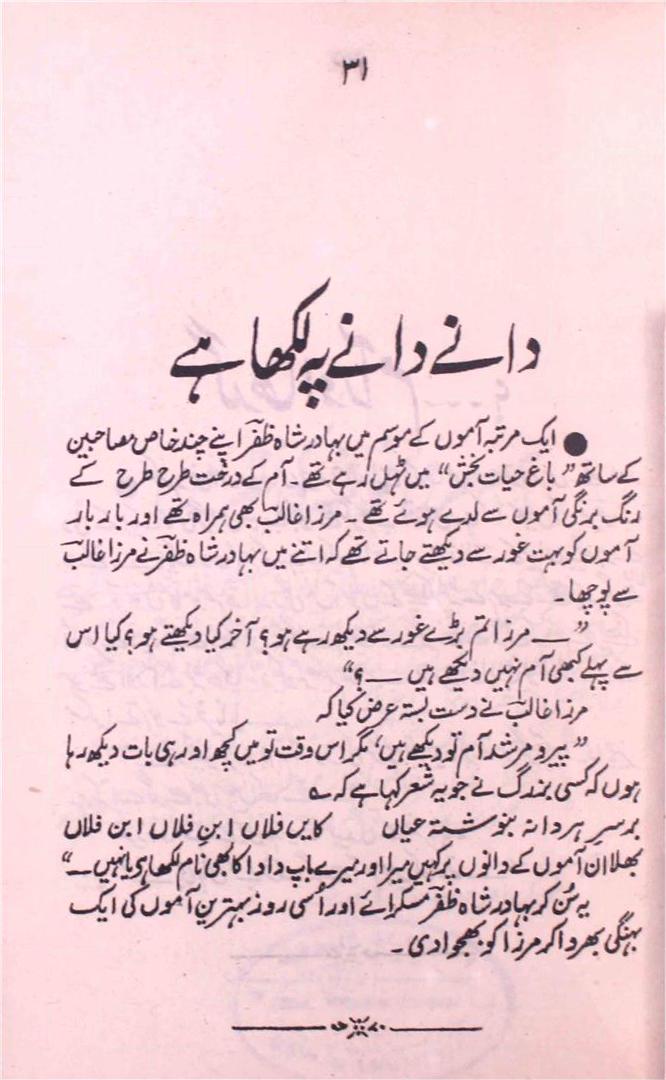 ۳۱
دانے دانے پہ لکھا ہے
● ایک مرتبہ آموں کے موسم میں بہادر شاہ ظفرؔ اپنے چند خاص مصاحبین
کے ساتھ ”باغ حیات بخش“ میں ٹہل رہے تھے۔ آم کے درخت طرح طرح کے
رنگ برنگی آموں سے لدے ہوئے تھے۔ مرزا غالبؔ بھی ہمراہ تھے اور بار بار
آموں کو بہت غور سے دیکھتے جاتے تھے کہ اتنے میں بہادر شاہ ظفرؔ نے مرزا غالبؔ
سے پوچھا۔
”— مرزا تم بڑے غور سے دیکھ رہے ہو؟ آخر کیا دیکھتے ہو؟ کیا اس
سے پہلے کبھی آم نہیں دیکھے ہیں —؟“
مرزا غالبؔ نے دست بستہ عرض کیا کہ
”پیر و مرشد آم تو دیکھے ہیں، مگر اس وقت تو میں کچھ اور ہی بات دیکھ رہا
ہوں کہ کسی بزرگ نے جو یہ شعر کہا ہے کہ ؎
بر سرِ ہر دانہ بنوشتہ عیاں کایں فلاں ابنِ فلاں ابن فلاں
بھلا ان آموں کے دانوں پر کہیں میرا اور میرے باپ دادا کا بھی نام لکھا ہی یا نہیں —“
یہ سُن کر بہادر شاہ ظفرؔ مسکرائے اور اُسی روز بہترین آموں کی ایک
بہنگی بھروا کر مرزا کو بھجوا دی۔